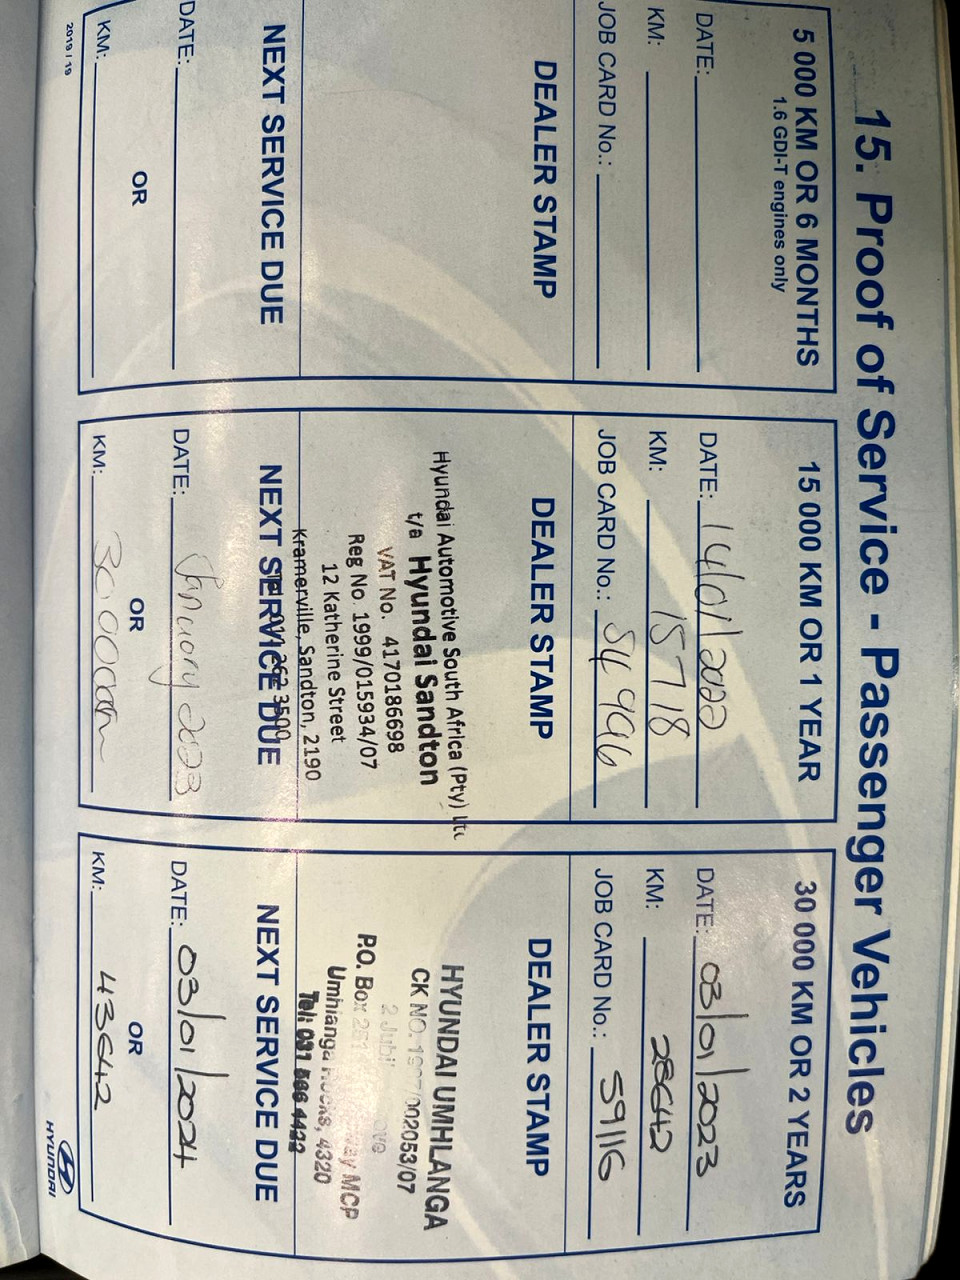 15. Proof of Service - Passenger Vehicles
5 000 KM OR 6 MONTHS
1.6 GDI-T engines only
DATE:
KM:
JOB CARD No.:
DEALER STAMP
NEXT SERVICE DUE
DATE:
OR
KM:
15 000 KM OR 1 YEAR
DATE: 14/01/2022
KM: 15718
JOB CARD No.: 54996
DEALER STAMP
Hyundai Automotive South Africa (Pty) Ltd
t/a Hyundai Sandton
VAT No. 4170186698
Reg No. 1999/015934/07
12 Katherine Street
Kramerville, Sandton, 2190
NEXT SERVICE DUE
DATE: January 2023
OR
KM: 30 000km
30 000 KM OR 2 YEARS
DATE: 03/01/2023
KM: 28642
JOB CARD No.: 59116
DEALER STAMP
HYUNDAI UMHLANGA
CK NO. 1997/002053/07
P.O. Box MCP
Umhlanga Rocks, 4320
Tel: 031 566 4422
NEXT SERVICE DUE
DATE: 03/01/2024
OR
KM: 43642
2019 / 19
HYUNDAI